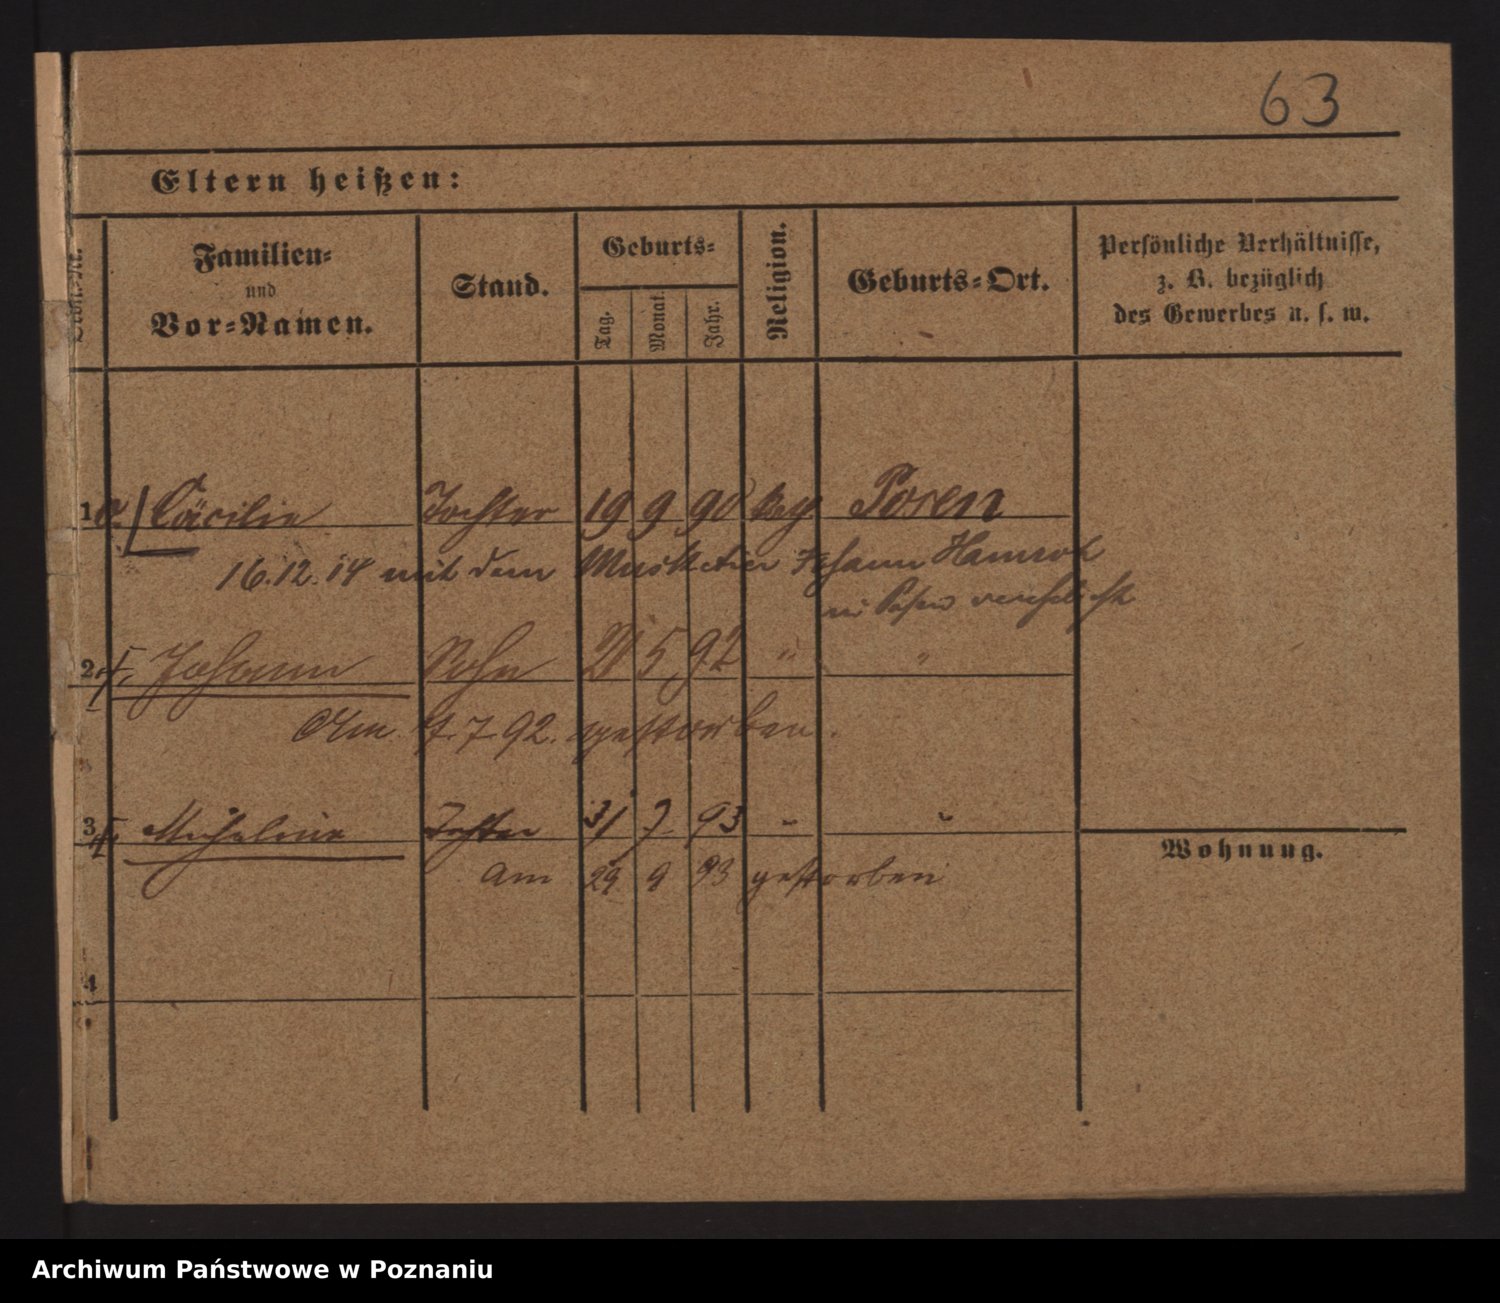 63
Eltern heißen:
Familien=
und
Vor=Namen.
Stand.
Geburts=
Tag.
Monat.
Jahr.
Religion.
Geburts=Ort.
Persönliche Verhältnisse,
z. B. bezüglich
des Gewerbes u. s. w.
1 Cäcilie Tochter 19 9 90 Posen
16.12.14 mit dem Musketier Johann
in Posen verehelicht
2 Johann Sohn 5 92 " "
7. 92. gestorben.
3 Michaline Tochter 31 7 93 " "
am 29 9 93 gestorben
4
Wohnung.
Archiwum Państwowe w Poznaniu